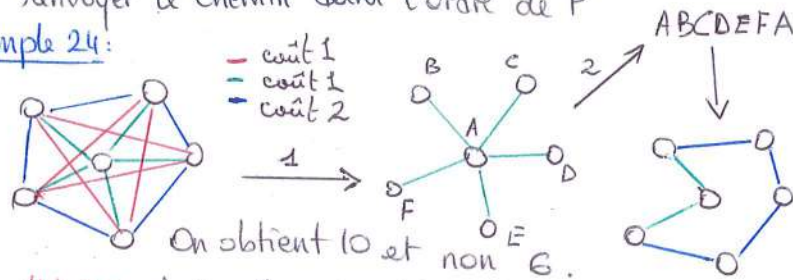 renvoyer le chemin dans l'ordre de P
mple 24:
coût 1
coût 1
coût 2
1
B
C
A
D
E
F
2
ABCDEFA
On obtient 10 et non 6.